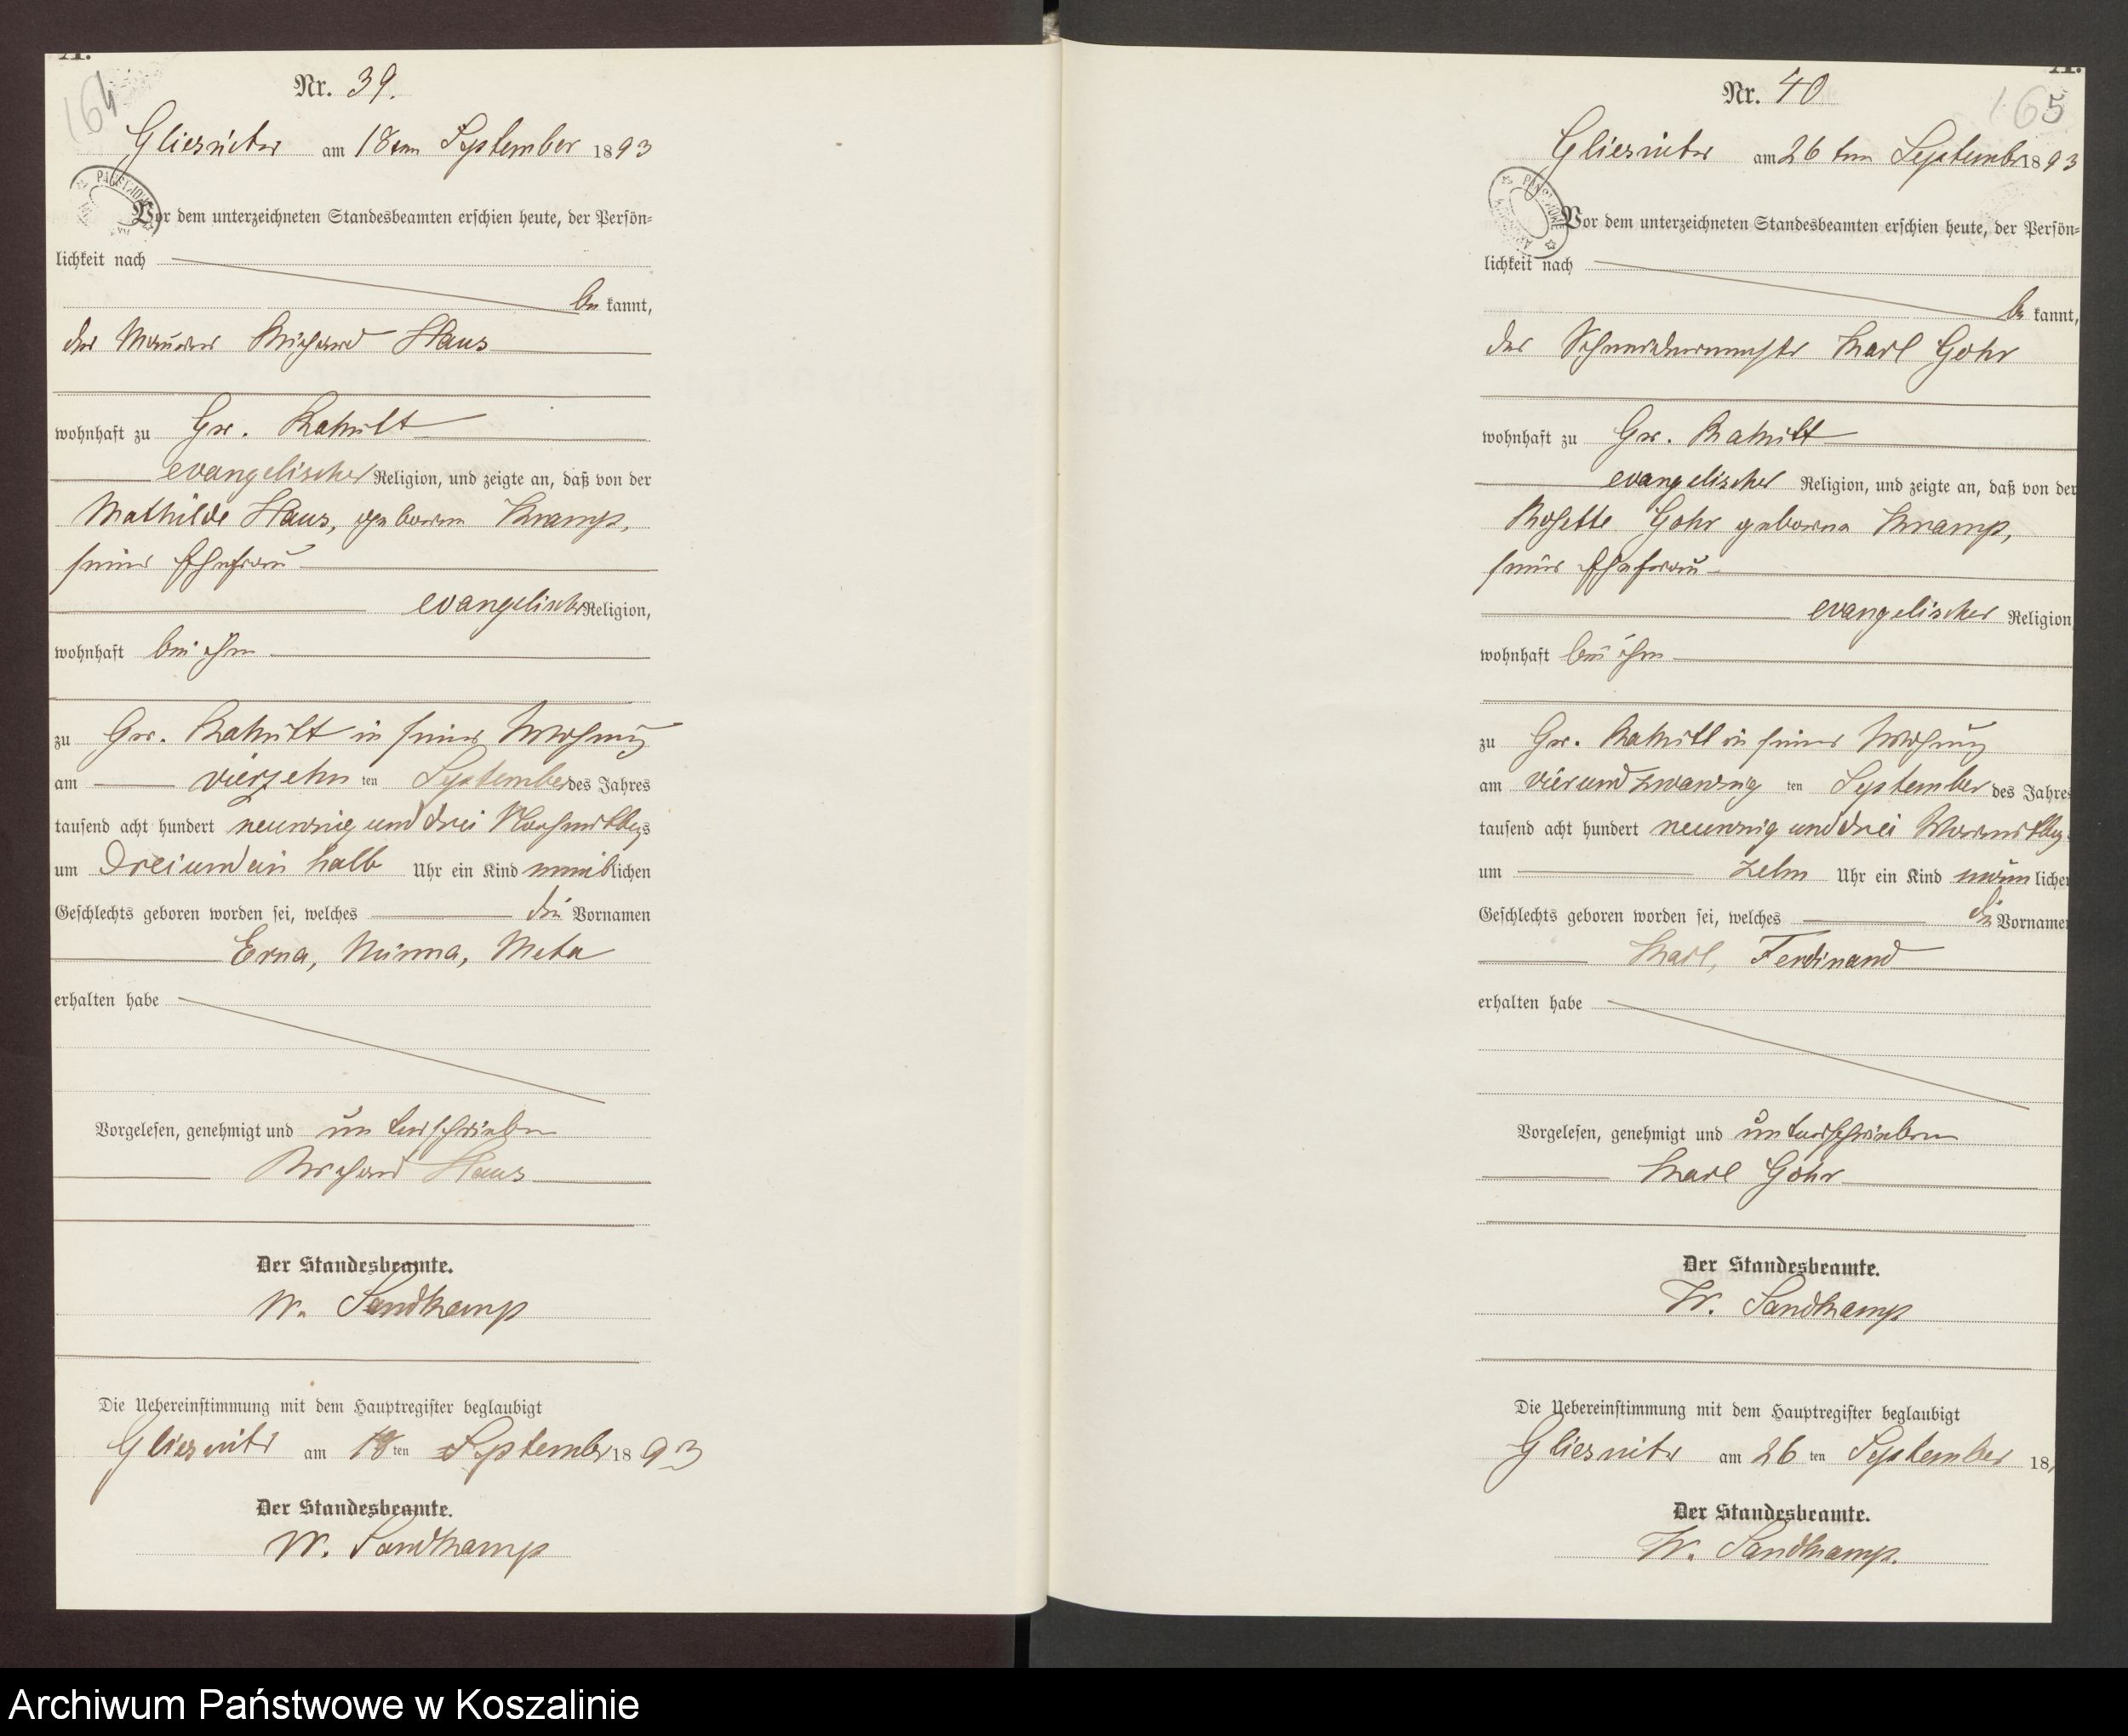 164
Nr. 39.
Gliesnitz am 18ten September 1893
Vor dem unterzeichneten Standesbeamten erschien heute, der Persön=
lichkeit nach
be kannt,
der Maurer Richard Haus
wohnhaft zu Gr. Rakitt
evangelischer Religion, und zeigte an, daß von der
Mathilde Haus, geborene Kramp,
seiner Ehefrau
evangelischer Religion,
wohnhaft bei ihm
zu Gr. Rakitt in seiner Wohnung
am vierzehn ten September des Jahres
tausend acht hundert neunzig und drei Nachmittags
um drei und ein halb Uhr ein Kind weiblichen
Geschlechts geboren worden sei, welches die Vornamen
Erna, Minna, Meta
erhalten habe
Vorgelesen, genehmigt und unterschrieben
Richard Haus
Der Standesbeamte.
W. Sandkamp
Die Uebereinstimmung mit dem Hauptregister beglaubigt
Gliesnitz am 18 ten September 1893
Der Standesbeamte.
W. Sandkamp
165
Nr. 40
Gliesnitz am 26 ten September 1893
Vor dem unterzeichneten Standesbeamten erschien heute, der Persön=
lichkeit nach
be kannt,
der Schneidermeister Karl Gohr
wohnhaft zu Gr. Rakitt
evangelischer Religion, und zeigte an, daß von der
Rosette Gohr geborene Kramp,
seiner Ehefrau
evangelischer Religion
wohnhaft bei ihm
zu Gr. Rakitt in seiner Wohnung
am vierundzwanzig ten September des Jahres
tausend acht hundert neunzig und drei Vormittags
um zehn Uhr ein Kind männlichen
Geschlechts geboren worden sei, welches die Vornamen
Karl, Ferdinand
erhalten habe
Vorgelesen, genehmigt und unterschrieben
Karl Gohr
Der Standesbeamte.
W. Sandkamp
Die Uebereinstimmung mit dem Hauptregister beglaubigt
Gliesnitz am 26 ten September 18
Der Standesbeamte.
W. Sandkamp.
Archiwum Państwowe w Koszalinie